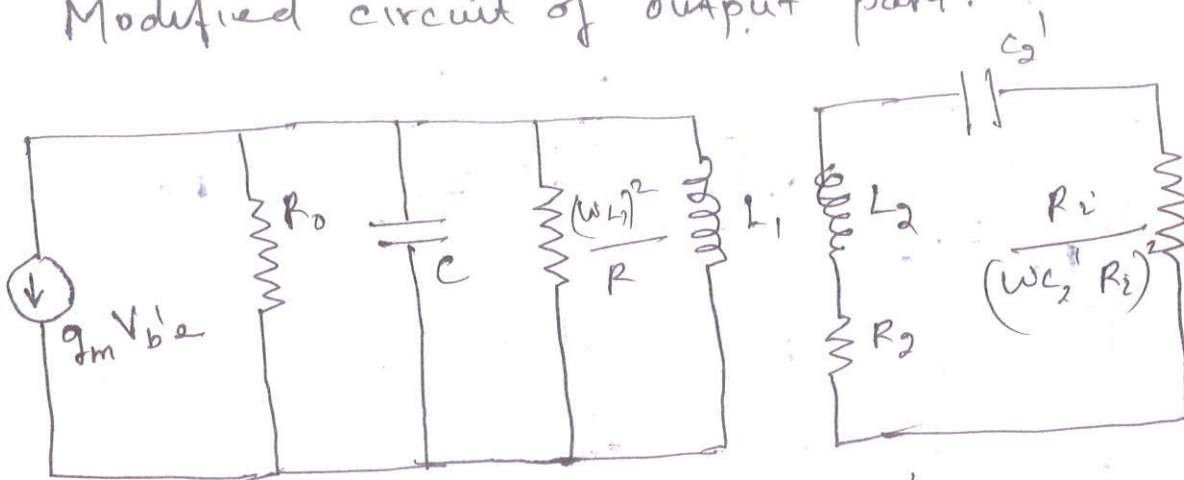 Modified circuit of output part.
C2'
R0
C
(ωL1)²
R
L1
L2
Ri
(ωC2' Ri)²
gm Vb'e
R2